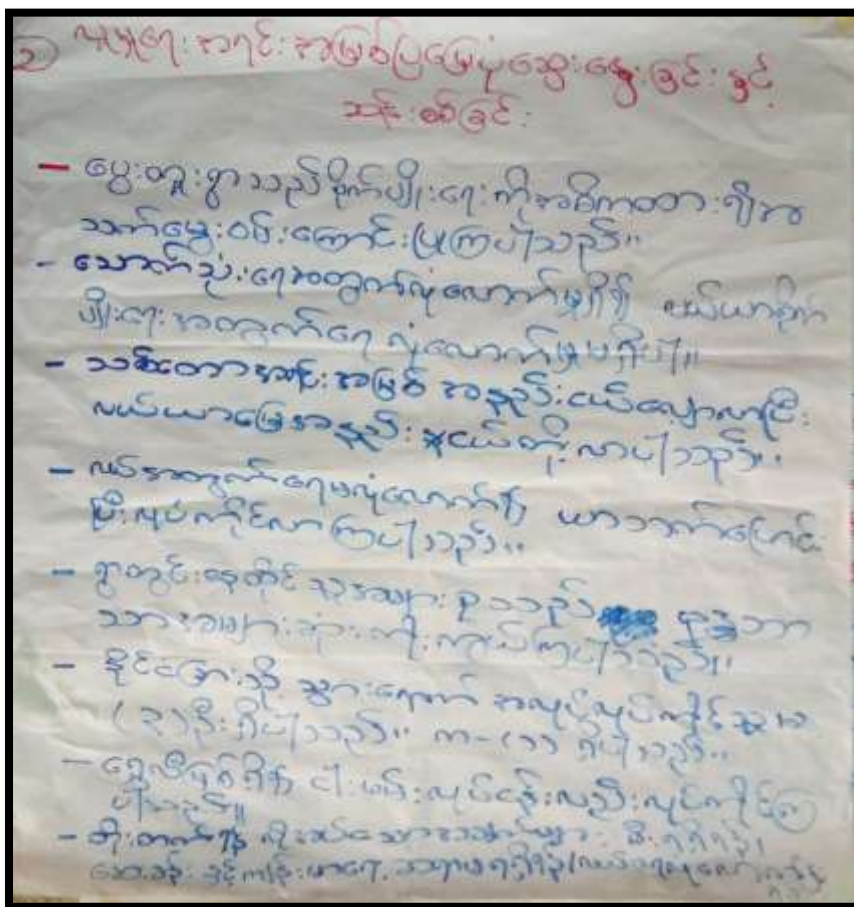 ၃ လူမှုရေး အရင်းအမြစ်ပြမြေပုံဆွေးနွေးခြင်း နှင့်
သန်းစစ်ခြင်း
– မွေးတူးရွာသည် စိုက်ပျိုးရေးကိုအဓိကထား၍အ
သက်မွေးဝမ်းကြောင်းပြုကြပါသည်။
– သောက်သုံးရေအတွက်လုံလောက်မှုရှိ၍ လယ်ယာစိုက်
ပျိုးရေးအတွက်ရေလုံလောက်မှုမရှိပါ။
– သစ်တောအရင်းအမြစ် အနည်းငယ်လျော့လာပြီး
လယ်ယာမြေအနည်းငယ်တိုးလာပါသည်။
– လယ်အတွက်ရေမလုံလောက်၍ ယာဘက်ပြောင်း
ပြီးလုပ်ကိုင်လာကြပါသည်။
– ရွာတွင်းနေထိုင်သူအများစုသည် ဗုဒ္ဓဘာ
သာအများဆုံးကိုးကွယ်ကြပါသည်။
– နိုင်ငံခြားသို့ သွားရောက် အလုပ်လုပ်ကိုင်သူ
ဦးရှိပါသည်။ ရှိပါသည်။
– ရွှေလီမြစ်ရှိ၍ ငါးဖမ်းလုပ်ငန်းလည်းလုပ်ကိုင်ကြ
ပါသည်။
– တိုးတက်ရန် လိုအပ်သောအချက်များ မီးရရှိရန်၊
ဆေးခန်း နှင့်ကျန်းမာရေး ဆရာမရရှိရန်၊